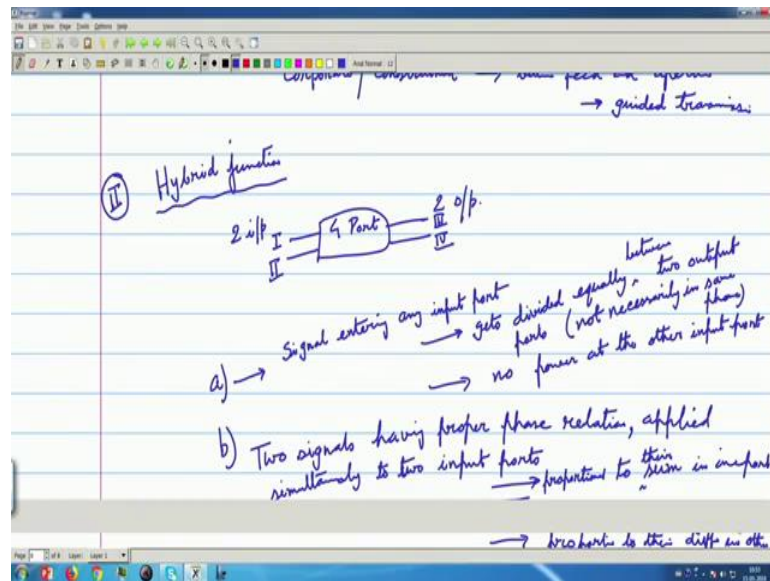 File Edit View Page Tools Options Help
Arial Normal 12
Corporate/constrained →
→ guided transmis.
II Hybrid function
2 i/p I 4 Port 2 o/p.
II III
IV
a) → Signal entering any input port
→ gets divided equally between two output
ports (not necessarily in same
phase)
→ no power at the other input port
b) Two signals having proper phase relation, applied
simultaneously to two input ports
→ proportional to their sum in one port
→ proportio to their diff in othe
Page of 8 Layer: Layer 1